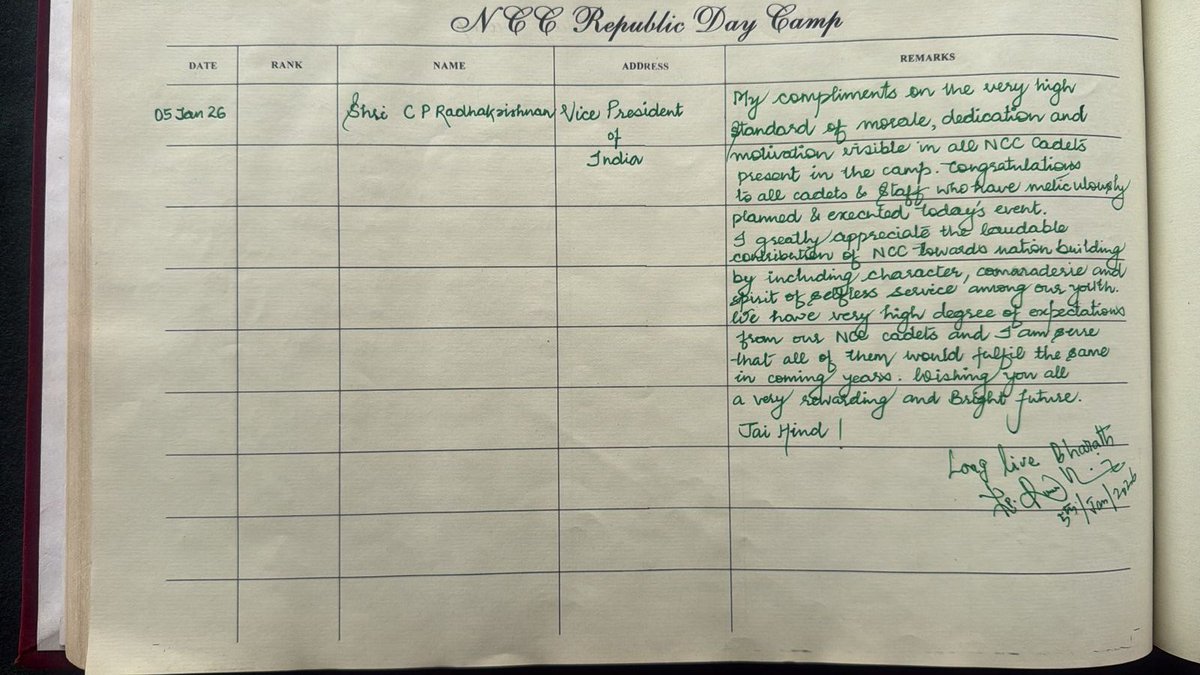 NCC Republic Day Camp
DATE RANK NAME ADDRESS REMARKS
05 Jan 26 Shri C P Radhakrishnan Vice President
of
India
My compliments on the very high
standard of morale, dedication and
motivation visible in all NCC Cadets
present in the camp. Congratulations
to all cadets & Staff who have meticulously
planned & executed today's event.
I greatly appreciate the laudable
contribution of NCC towards nation building
by including character, comaraderie and
spirit of selfless service among our youth.
We have very high degree of expectations
from our NCC cadets and I am sure
that all of them would fulfil the same
in coming years. Wishing you all
a very rewarding and Bright future.
Jai Hind !
Long live Bharath
5th/Jan/2026